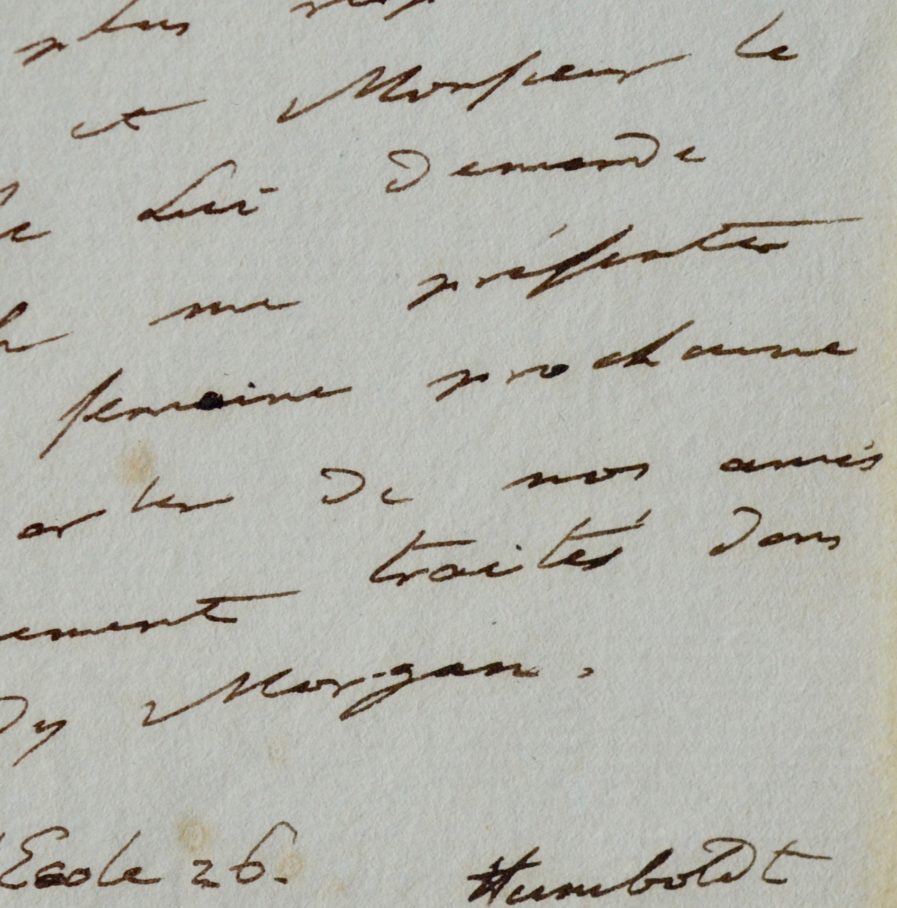 plus
et Monsieur le
Lui demande
me présenter
semaine prochaine
parler de nos amis
ement traités dans
dy Morgan.
l'Ecole 26. Humboldt